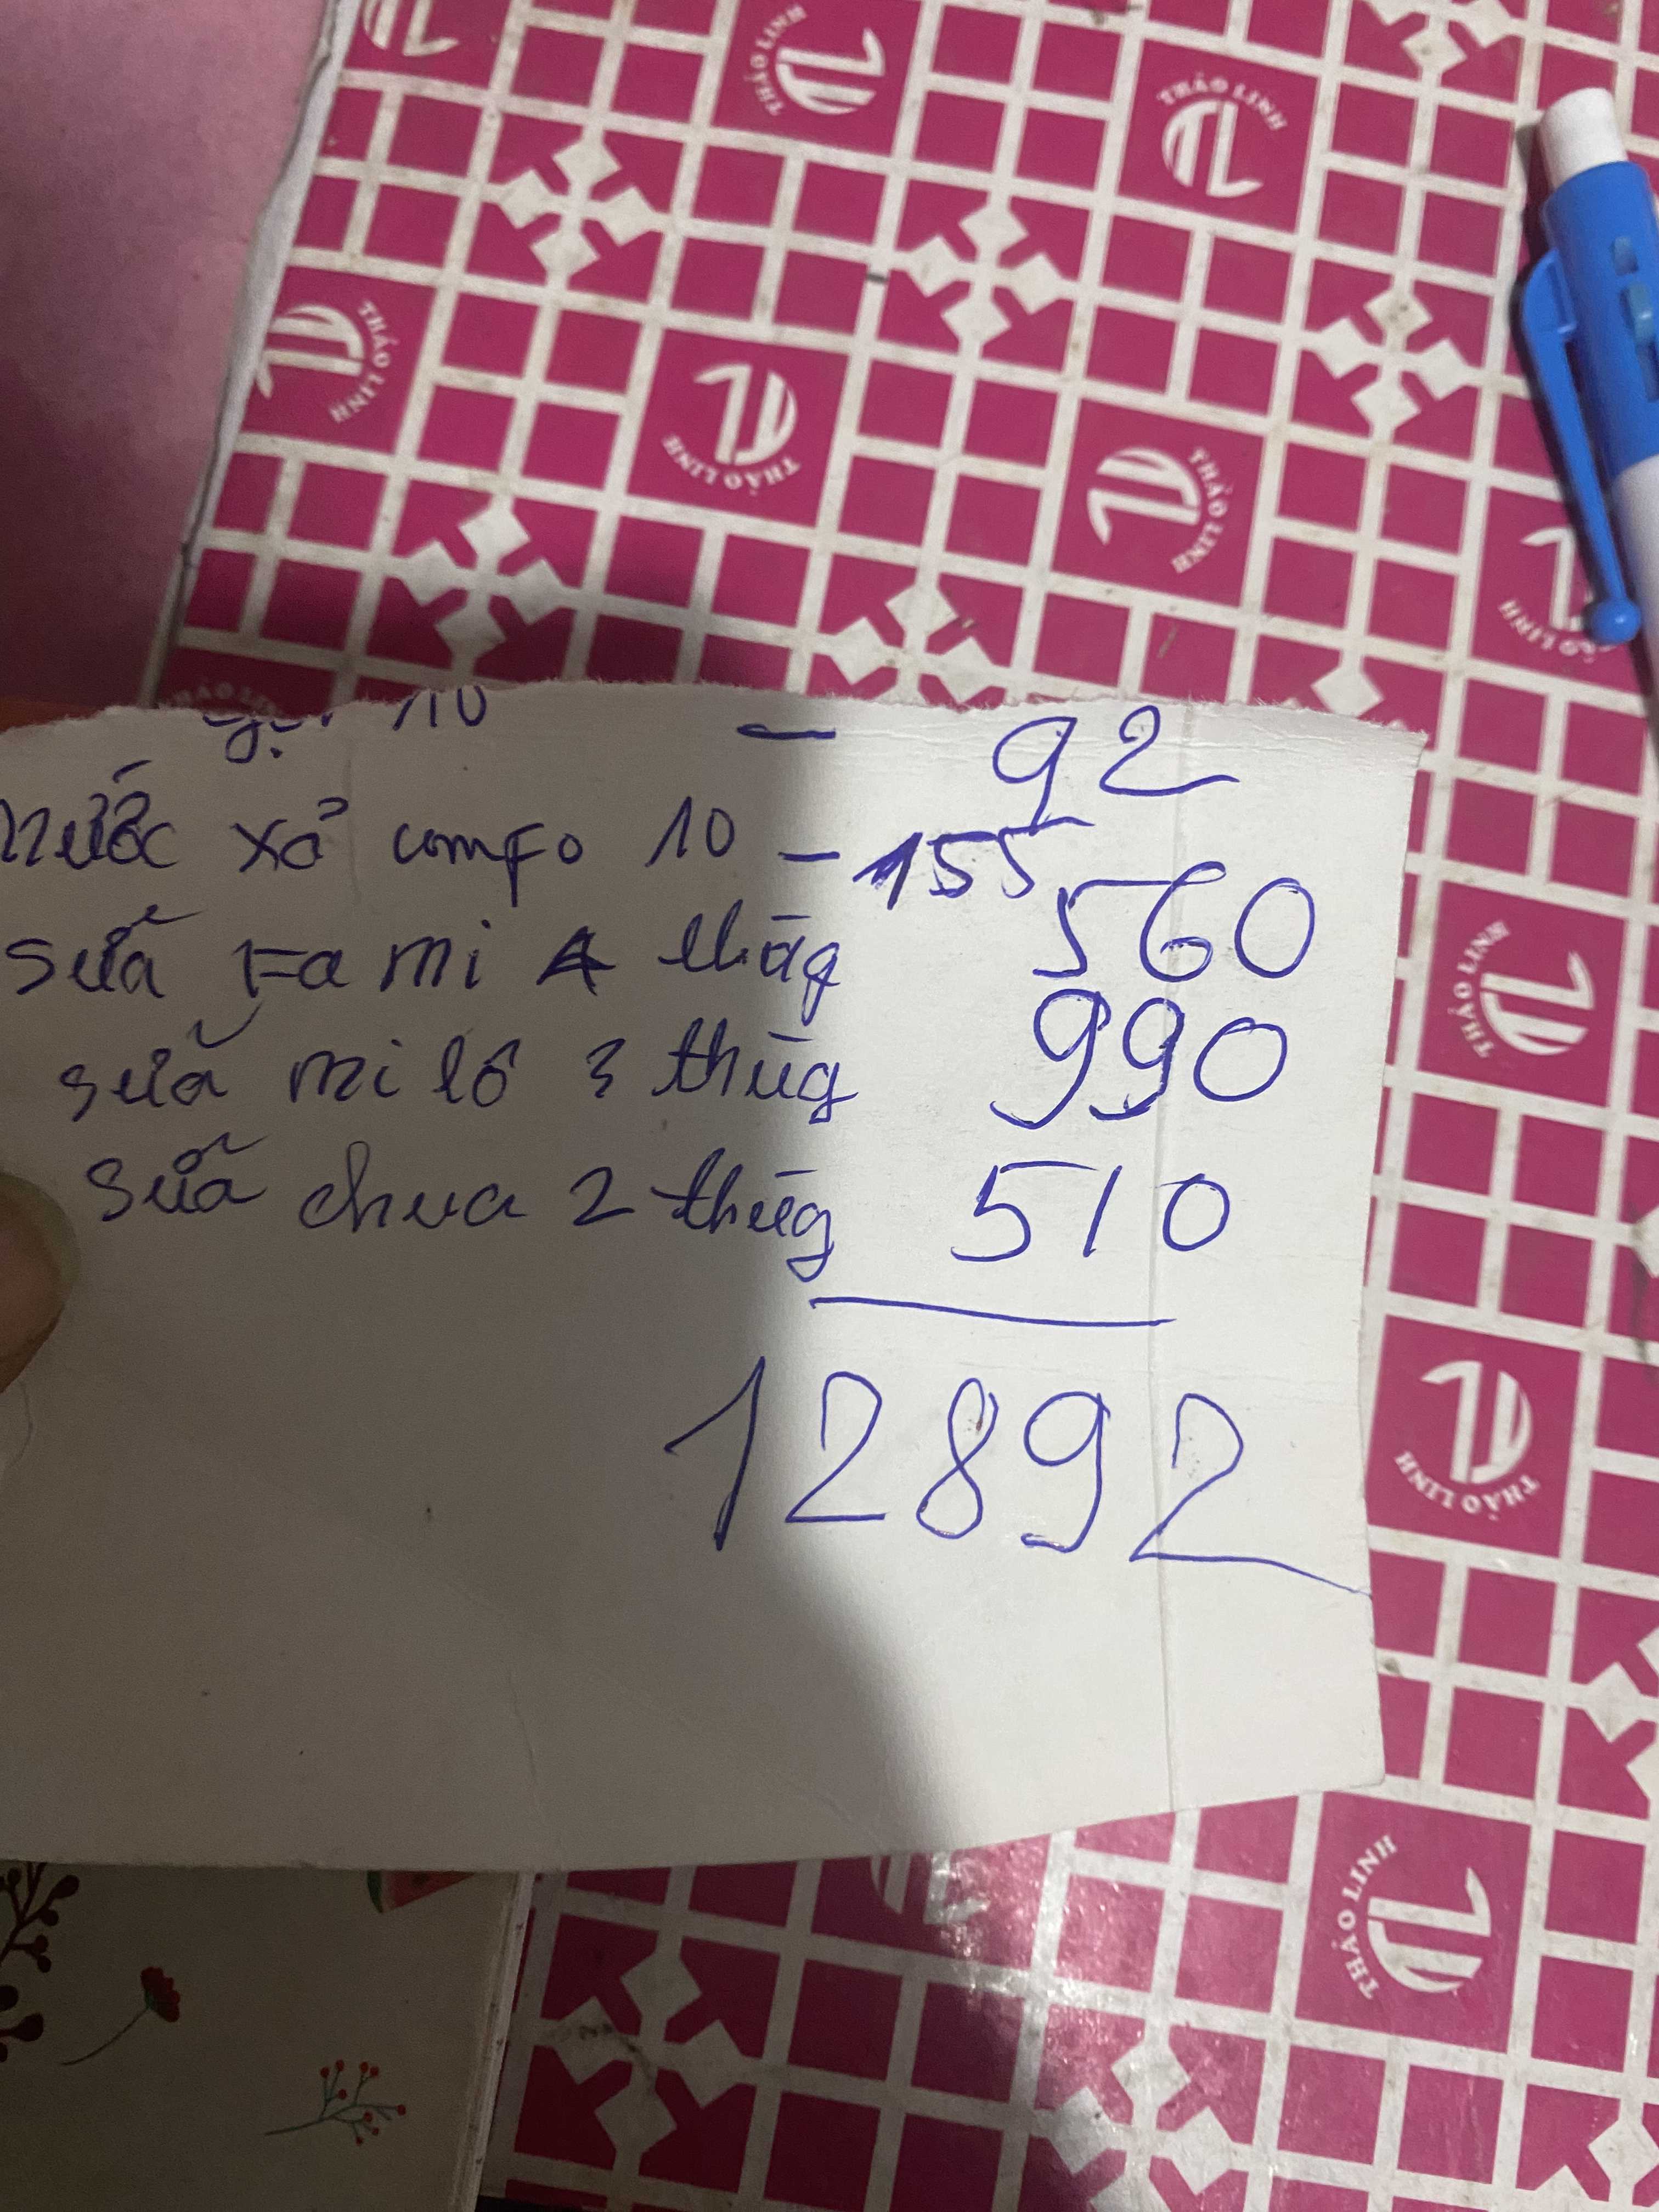 10 - 92
Nước xả comfo 10 - 155
sữa Fami 4 thùg 560
sữa milô 3 thùg 990
sữa chua 2 thùg 510
12892
THẢO LINH
THẢO LINH
THẢO LINH
THẢO LINH
THẢO LINH
THẢO LINH
THẢO LINH
THẢO LINH
THẢO LINH